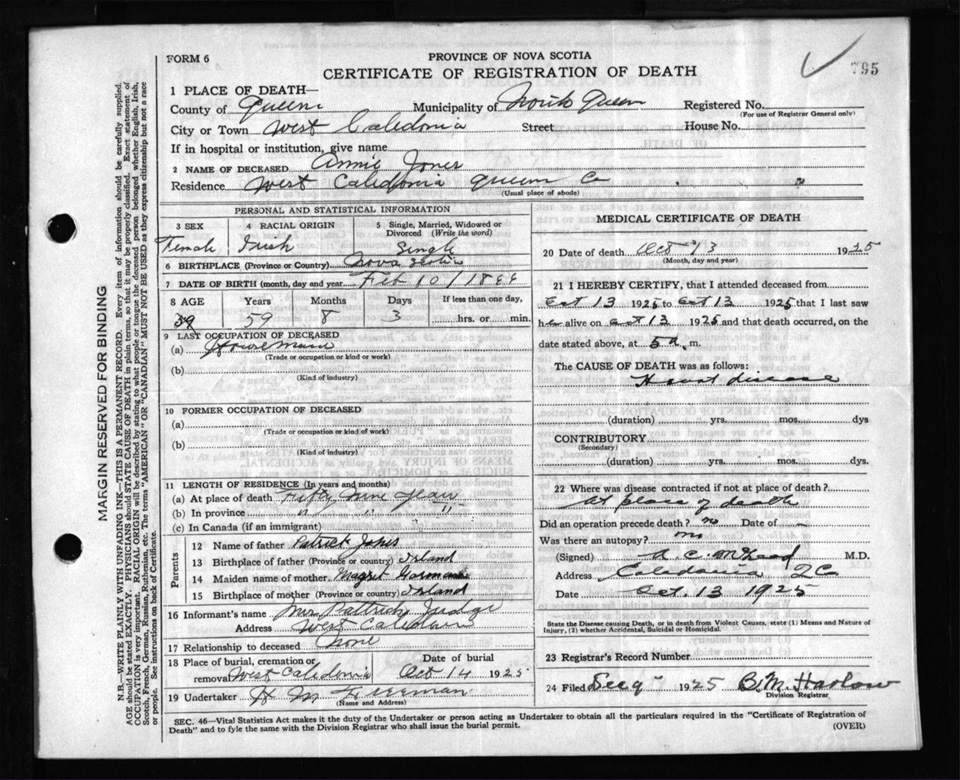 795
FORM 6
PROVINCE OF NOVA SCOTIA
CERTIFICATE OF REGISTRATION OF DEATH
1 PLACE OF DEATH—
County of Queens Municipality of North Queen Registered No.
(For use of Registrar General only)
City or Town West Caledonia Street House No.
If in hospital or institution, give name
2 NAME OF DECEASED Annie Jones
Residence West Caledonia Queens Co
(Usual place of abode)
PERSONAL AND STATISTICAL INFORMATION
3 SEX 4 RACIAL ORIGIN 5 Single, Married, Widowed or Divorced (Write the word)
Female Irish Single
6 BIRTHPLACE (Province or Country) Nova Scotia
7 DATE OF BIRTH (month, day and year) Feb 10/1866
8 AGE Years Months Days If less than one day,
39 59 8 3 hrs. or min.
9 LAST OCCUPATION OF DECEASED
(a) House maid
(Trade or occupation or kind or work)
(b)
(Kind of industry)
10 FORMER OCCUPATION OF DECEASED
(a)
(Trade or occupation or kind of work)
(b)
(Kind of industry)
11 LENGTH OF RESIDENCE (In years and months)
(a) At place of death Fifty nine years
(b) In province " " "
(c) In Canada (if an immigrant)
Parents
12 Name of father Patrick Jones
13 Birthplace of father (Province or country) Irland
14 Maiden name of mother Magret
15 Birthplace of mother (Province or country) Irland
16 Informant's name Mrs Pattrick Judge
Address West Caledonia
17 Relationship to deceased None
18 Place of burial, cremation or removal West Caledonia Date of burial Oct 14 1925
19 Undertaker H M Freeman
(Name and Address)
MEDICAL CERTIFICATE OF DEATH
20 Date of death Oct 13 1925
(Month, day and year)
21 I HEREBY CERTIFY, that I attended deceased from
Oct 13 1925 to Oct 13 1925 that I last saw
her alive on Oct 13 1925 and that death occurred, on the
date stated above, at 5 a. m.
The CAUSE OF DEATH was as follows:
Heart disease
(duration) yrs. mos. dys
CONTRIBUTORY
(Secondary)
(duration) yrs. mos. dys.
22 Where was disease contracted if not at place of death?
At place of death
Did an operation precede death? no Date of —
Was there an autopsy? no
(Signed) M.D.
Address Caledonia Q Co
Date Oct. 13 1925
State the Disease causing Death, or in death from Violent Causes, state (1) Means and Nature of
Injury, (2) whether Accidental, Suicidal or Homicidal.
23 Registrar's Record Number
24 Filed 1925 B. M. Harlow
Division Registrar
SEC. 46—Vital Statistics Act makes it the duty of the Undertaker or person acting as Undertaker to obtain all the particulars required in the "Certificate of Registration of
Death" and to fyle the same with the Division Registrar who shall issue the burial permit.
(OVER)
MARGIN RESERVED FOR BINDING
N.B.—WRITE PLAINLY WITH UNFADING INK—THIS IS A PERMANENT RECORD. Every item of information should be carefully supplied.
AGE should be stated EXACTLY. PHYSICIANS should STATE CAUSE OF DEATH in plain terms, so that it may be properly classified. Exact statement of
OCCUPATION is very important. RACIAL ORIGIN will be described by stating to what people or tongue the deceased person belonged whether English, Irish,
Scotch, French, German, Russian, Ruthenian, etc. The terms "AMERICAN" OR "CANADIAN" MUST NOT BE USED as they express citizenship but not a race
or people. See instructions on back of Certificate.